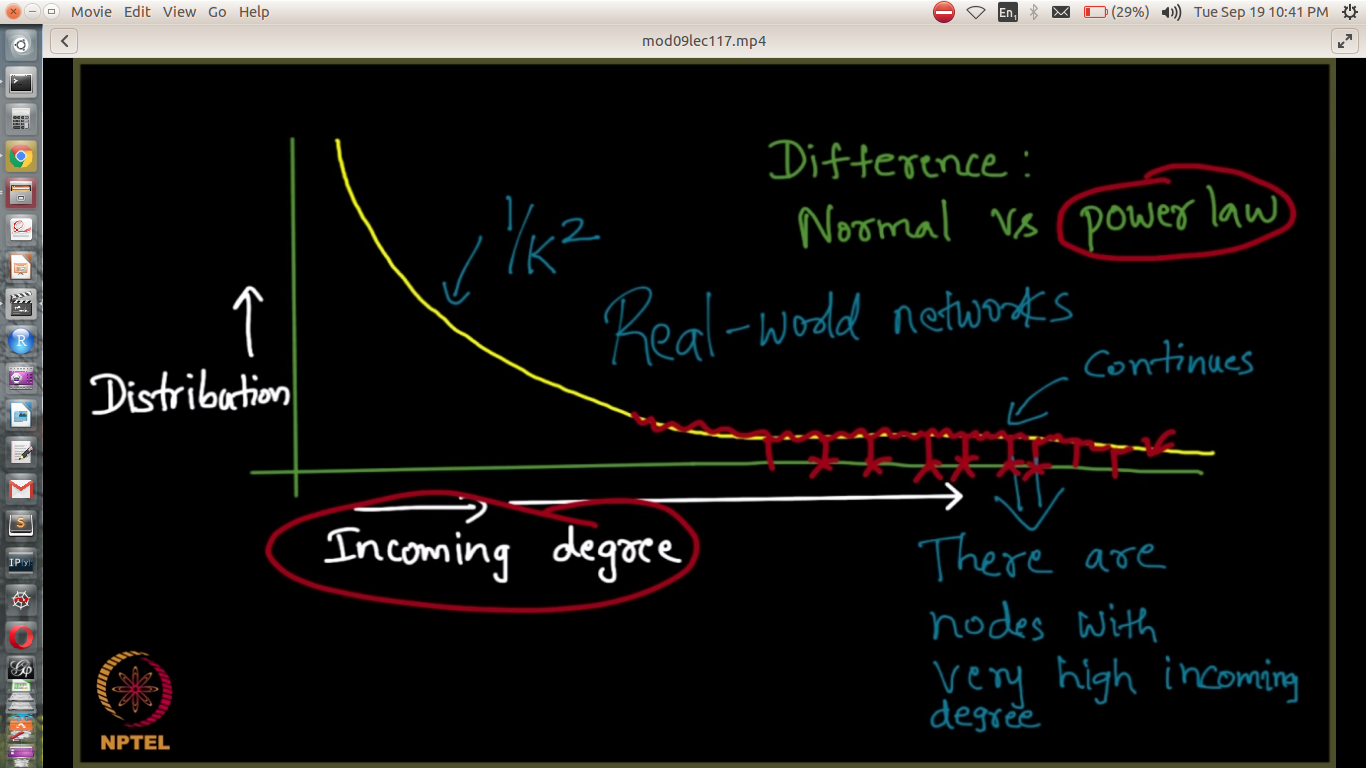 Movie Edit View Go Help
En1 (29%) Tue Sep 19 10:41 PM
mod09lec117.mp4
Difference:
Normal vs power law
1/K2
Real-world networks
Continues
Distribution
Incoming degree
There are
nodes with
very high incoming
degree
NPTEL
R
S
IP[y]: